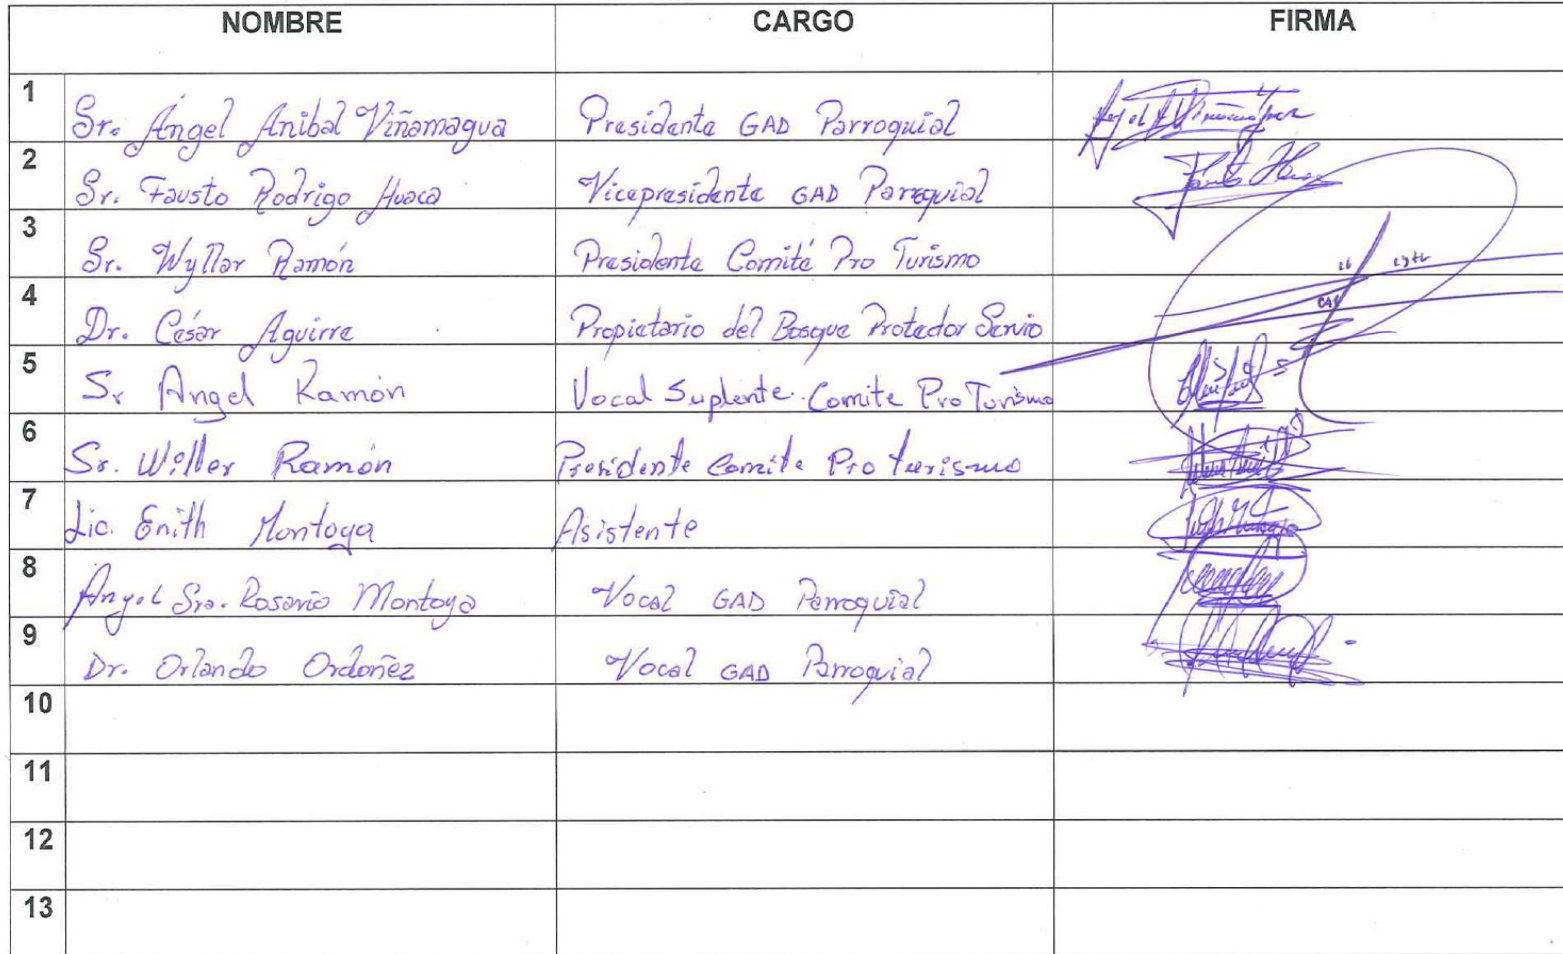 NOMBRE CARGO FIRMA
1 Sr. Ángel Anibal Viñamagua Presidente GAD Parroquial
2 Sr. Fausto Rodrigo Huaca Vicepresidente GAD Parroquial
3 Sr. Wyllar Ramón Presidente Comité Pro Turismo
4 Dr. César Aguirre Propietario del Bosque Protector Servio
5 Sr Angel Ramón Vocal Suplente. Comite Pro Turismo
6 Sr. Willer Ramón Presidente Comite Pro turismo
7 Lic. Enith Montoya Asistente
8 Angel Sra. Rosario Montoya Vocal GAD Parroquial
9 Dr. Orlando Ordoñez Vocal GAD Parroquial
10
11
12
13